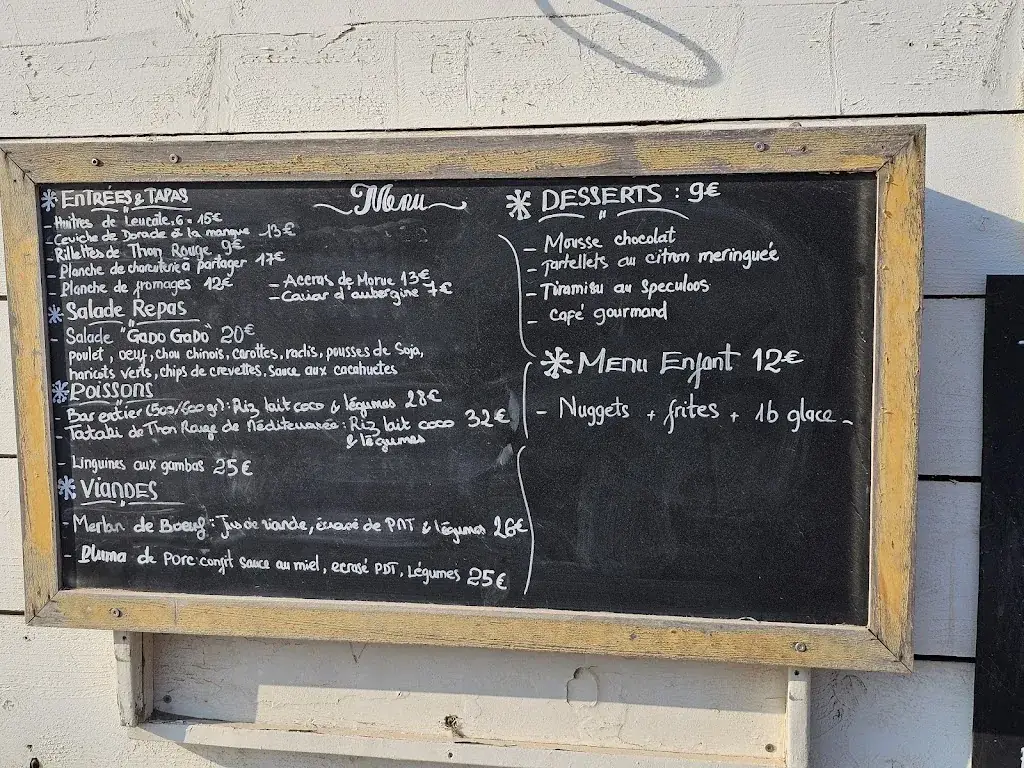 Menu
* ENTRÉES & TAPAS
- Huîtres de Leucate. 6 = 15€
- Ceviche de Dorade à la mangue - 13€
- Rillettes de Thon Rouge 9€
- Planche de charcuterie à partager 17€
- Planche de fromages 12€
- Accras de Morue 13€
- Caviar d'aubergine 7€
* Salade Repas
- Salade "GADO GADO" 20€
poulet, oeuf, chou chinois, carottes, radis, pousses de Soja,
haricots verts, chips de crevettes, sauce aux cacahuetes
* POISSONS
- Bar entier (500/600 gr) : Riz lait coco & légumes 28€
- Tataki de Thon Rouge de Méditerranée : Riz lait coco 32€
& légumes
- Linguines aux gambas 25€
* VIANDES
- Merlan de Boeuf : Jus de viande, écrasé de PDT & légumes 26€
- Pluma de Porc confit sauce au miel, ecrasé PDT, Légumes 25€
* DESSERTS : 9€
- Mousse chocolat
- Tartellets au citron meringuée
- Tiramisu au Speculoos
- Café gourmand
* MENU Enfant 12€
- Nuggets + frites + 1b glace -